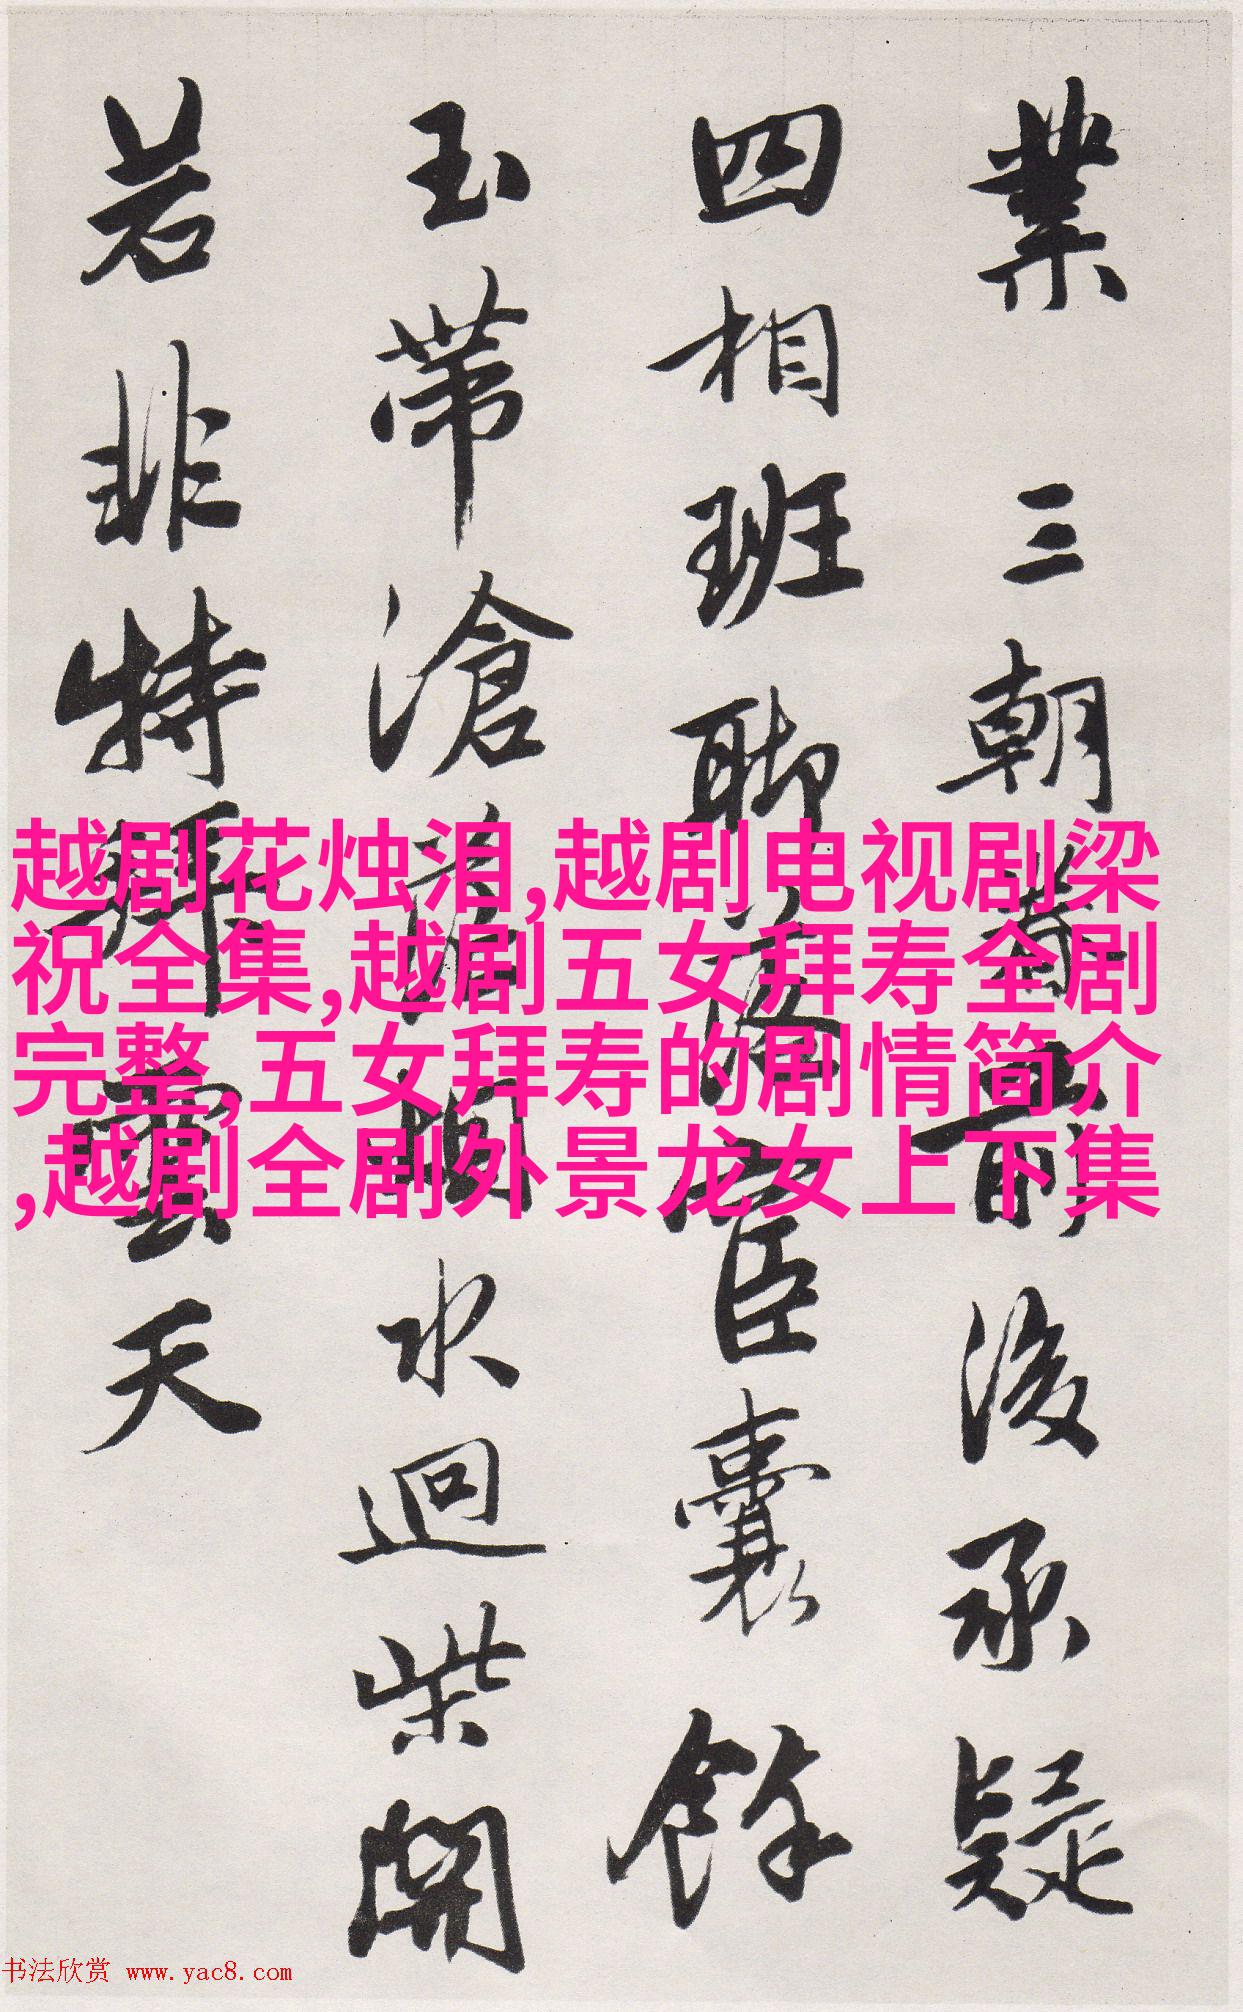 業 三朝前後承疑
四相班聊落宦囊餘
玉帶滄水迴柴開
若非特拜雲天
越剧花烛泪,越剧电视剧梁
祝全集,越剧五女拜寿全剧
完整,五女拜寿的剧情简介
,越剧全剧外景龙女上下集
书法欣赏 www.yac8.com